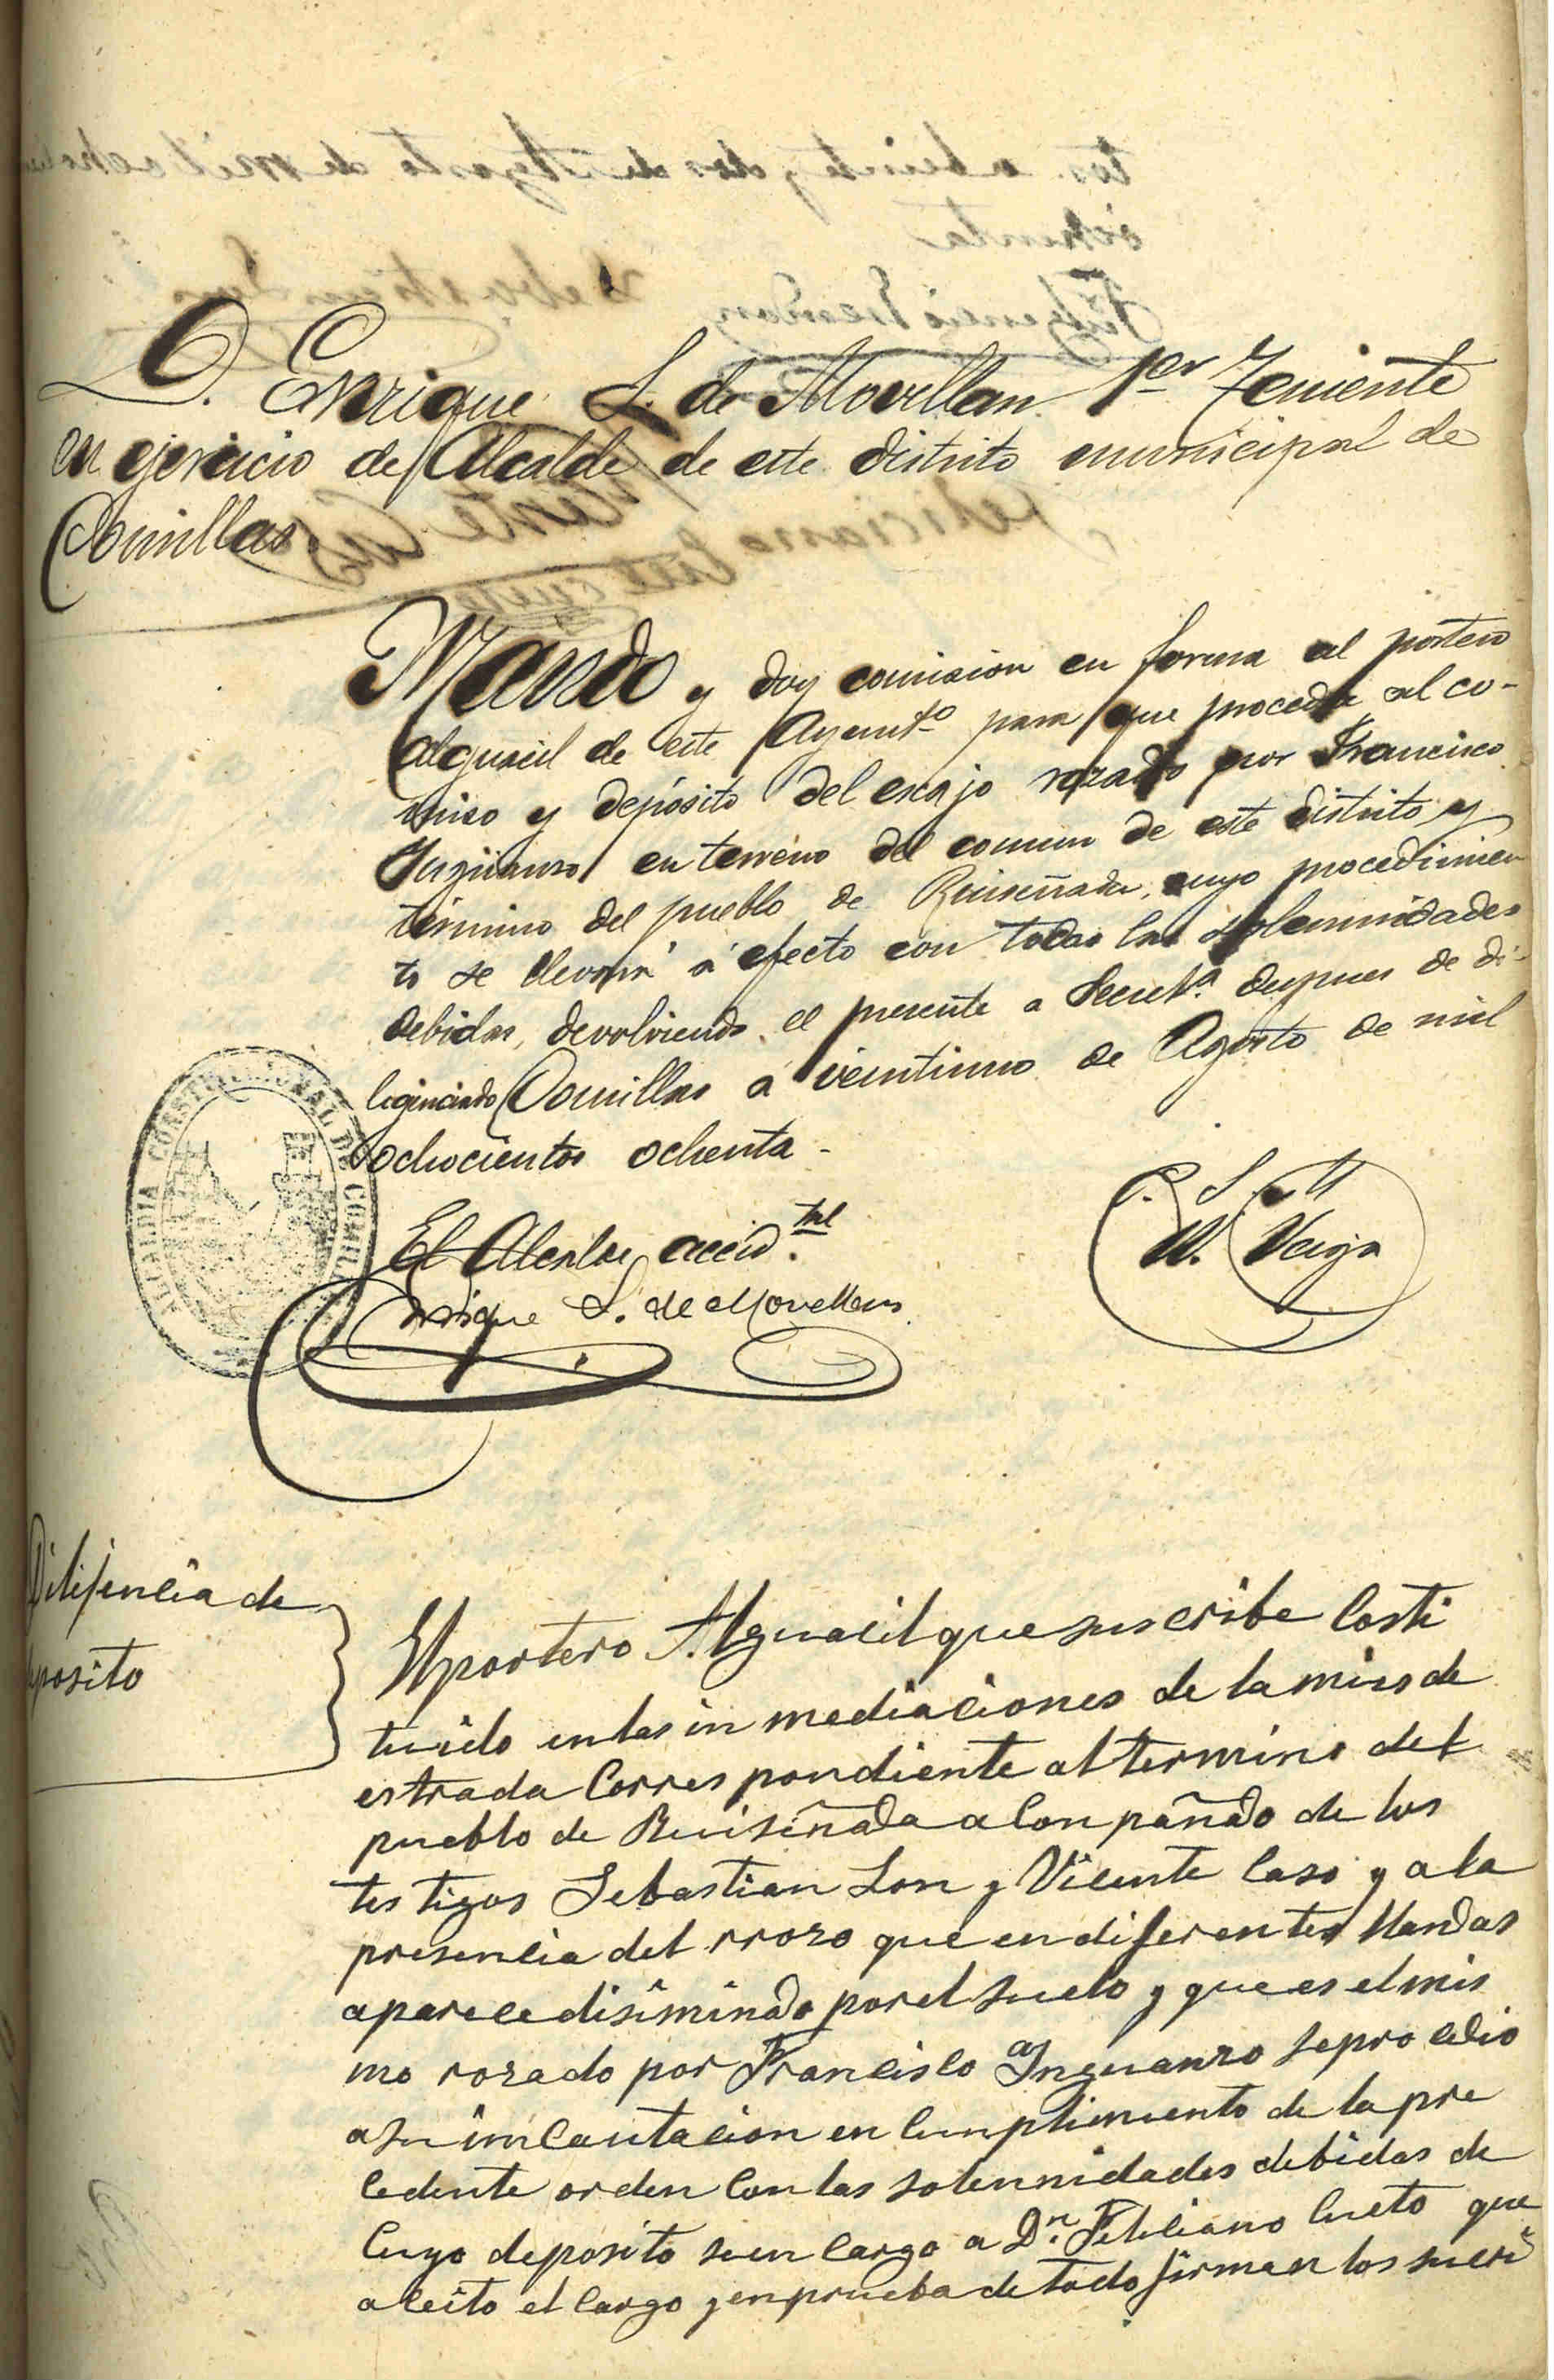 D. Enrique S. de Movellan 1er Teniente
en ejercicio de Alcalde de este distrito municipal de
Comillas.
Mando y doy comision en forma al portero
alguacil de este Ayuntº para que proceda al co-
miso y depósito del escajo rozado por Francisco
Inguanzo en terreno del comun de este distrito y
término del pueblo de Ruiseñada, cuyo procedimien
to se llevará á efecto con todas las solemnidades
debidas, devolviendo el presente a Secretª despues de di-
ligenciado Comillas á veintiuno de Agosto de mil
ochocientos ochenta -
ALCALDIA CONSTITUCIONAL DE COMILLAS
El Alcalde accid.tal
Enrique S. de Movellan
P. S. M.
W. Veija
Dilijencia de
posito
El portero Alguacil que suscribe Costi
tuido en las in mediaciones de la mies de
estrada Corres pondiente al termino del
pueblo de Ruiseñada aconpañado de los
tes tigos Sebastian Lon y Vicente Caso y a la
presencia del rrozo que en diferentes Mandas
aparece disiminado por el suelo y que es el mis
mo rozado por Francisco Inguanzo se procedio
a su incautacion en cunplimiento de la pre
cedente orden con las solennidades debidas de
cuyo deposito se en cargo a Dn. Feliciano Cueto que
aceito el cargo y en prueba de todo firman los sucri